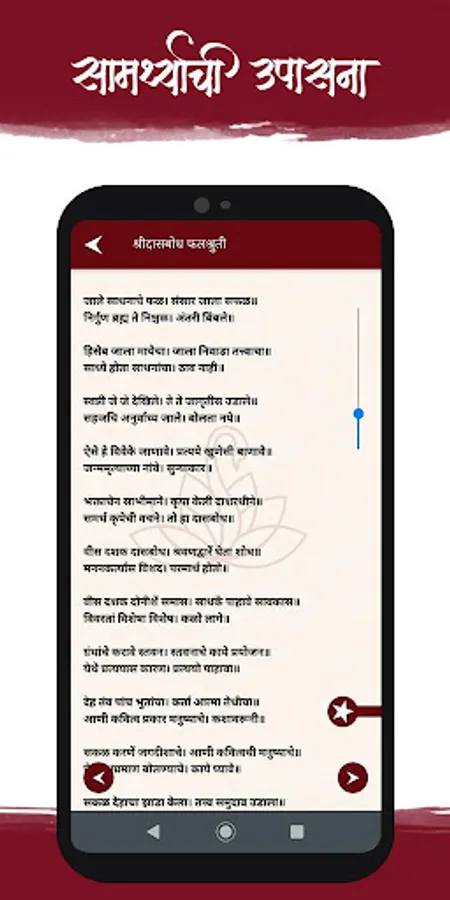 सामर्थ्याची उपासना
श्रीदासबोध फलश्रुती
जाले साधनाचे फळ। संसार जाला सफळ॥
निर्गुण ब्रह्म ते निश्चळ। अंतरी बिंबले॥
हिसेब जाला मायेचा। जाला निवाडा तत्त्वाचा॥
साध्य होता साधनाचा। ठाव नाही॥
स्वप्नी जे जे देखिले। ते ते जागृतीस उडाले॥
सहजचि अनुर्वाच्य जाले। बोलता नये॥
ऐसे हे विवेके जाणावे। प्रत्यये खुणेसी बाणावे॥
जन्ममृत्याच्या नांवे। सुन्याकार॥
भक्ताचेन साभीमाने। कृपा केली दाशरथीने॥
समर्थ कृपेची वचने। तो हा दासबोध॥
वीस दशक दासबोध। श्रवणद्वारें घेता शोध॥
मननकर्त्यास विशद। परमार्थ होतो॥
वीस दशक दोनीशें समास। साधकें पाहावे सावकास॥
विवरतां विशेषा विशेष। कळों लागे॥
ग्रंथांचे करावे स्तवन। स्तवनाचे काये प्रयोजन॥
येथे प्रत्ययास कारण। प्रत्ययो पाहावा॥
देह तंव पांच भूतांचा। कर्ता आत्मा तेथीचा॥
आणी कवित्व प्रकार मनुष्याचे। कशावरूनी॥
सकळ करणें जगदीशाचें। आणी कवित्वची मनुष्याचें॥
बोलण्याचे। काये घ्यावे॥
सकळ देहाचा झाडा केला। तत्त्व समुदाव उडाला॥